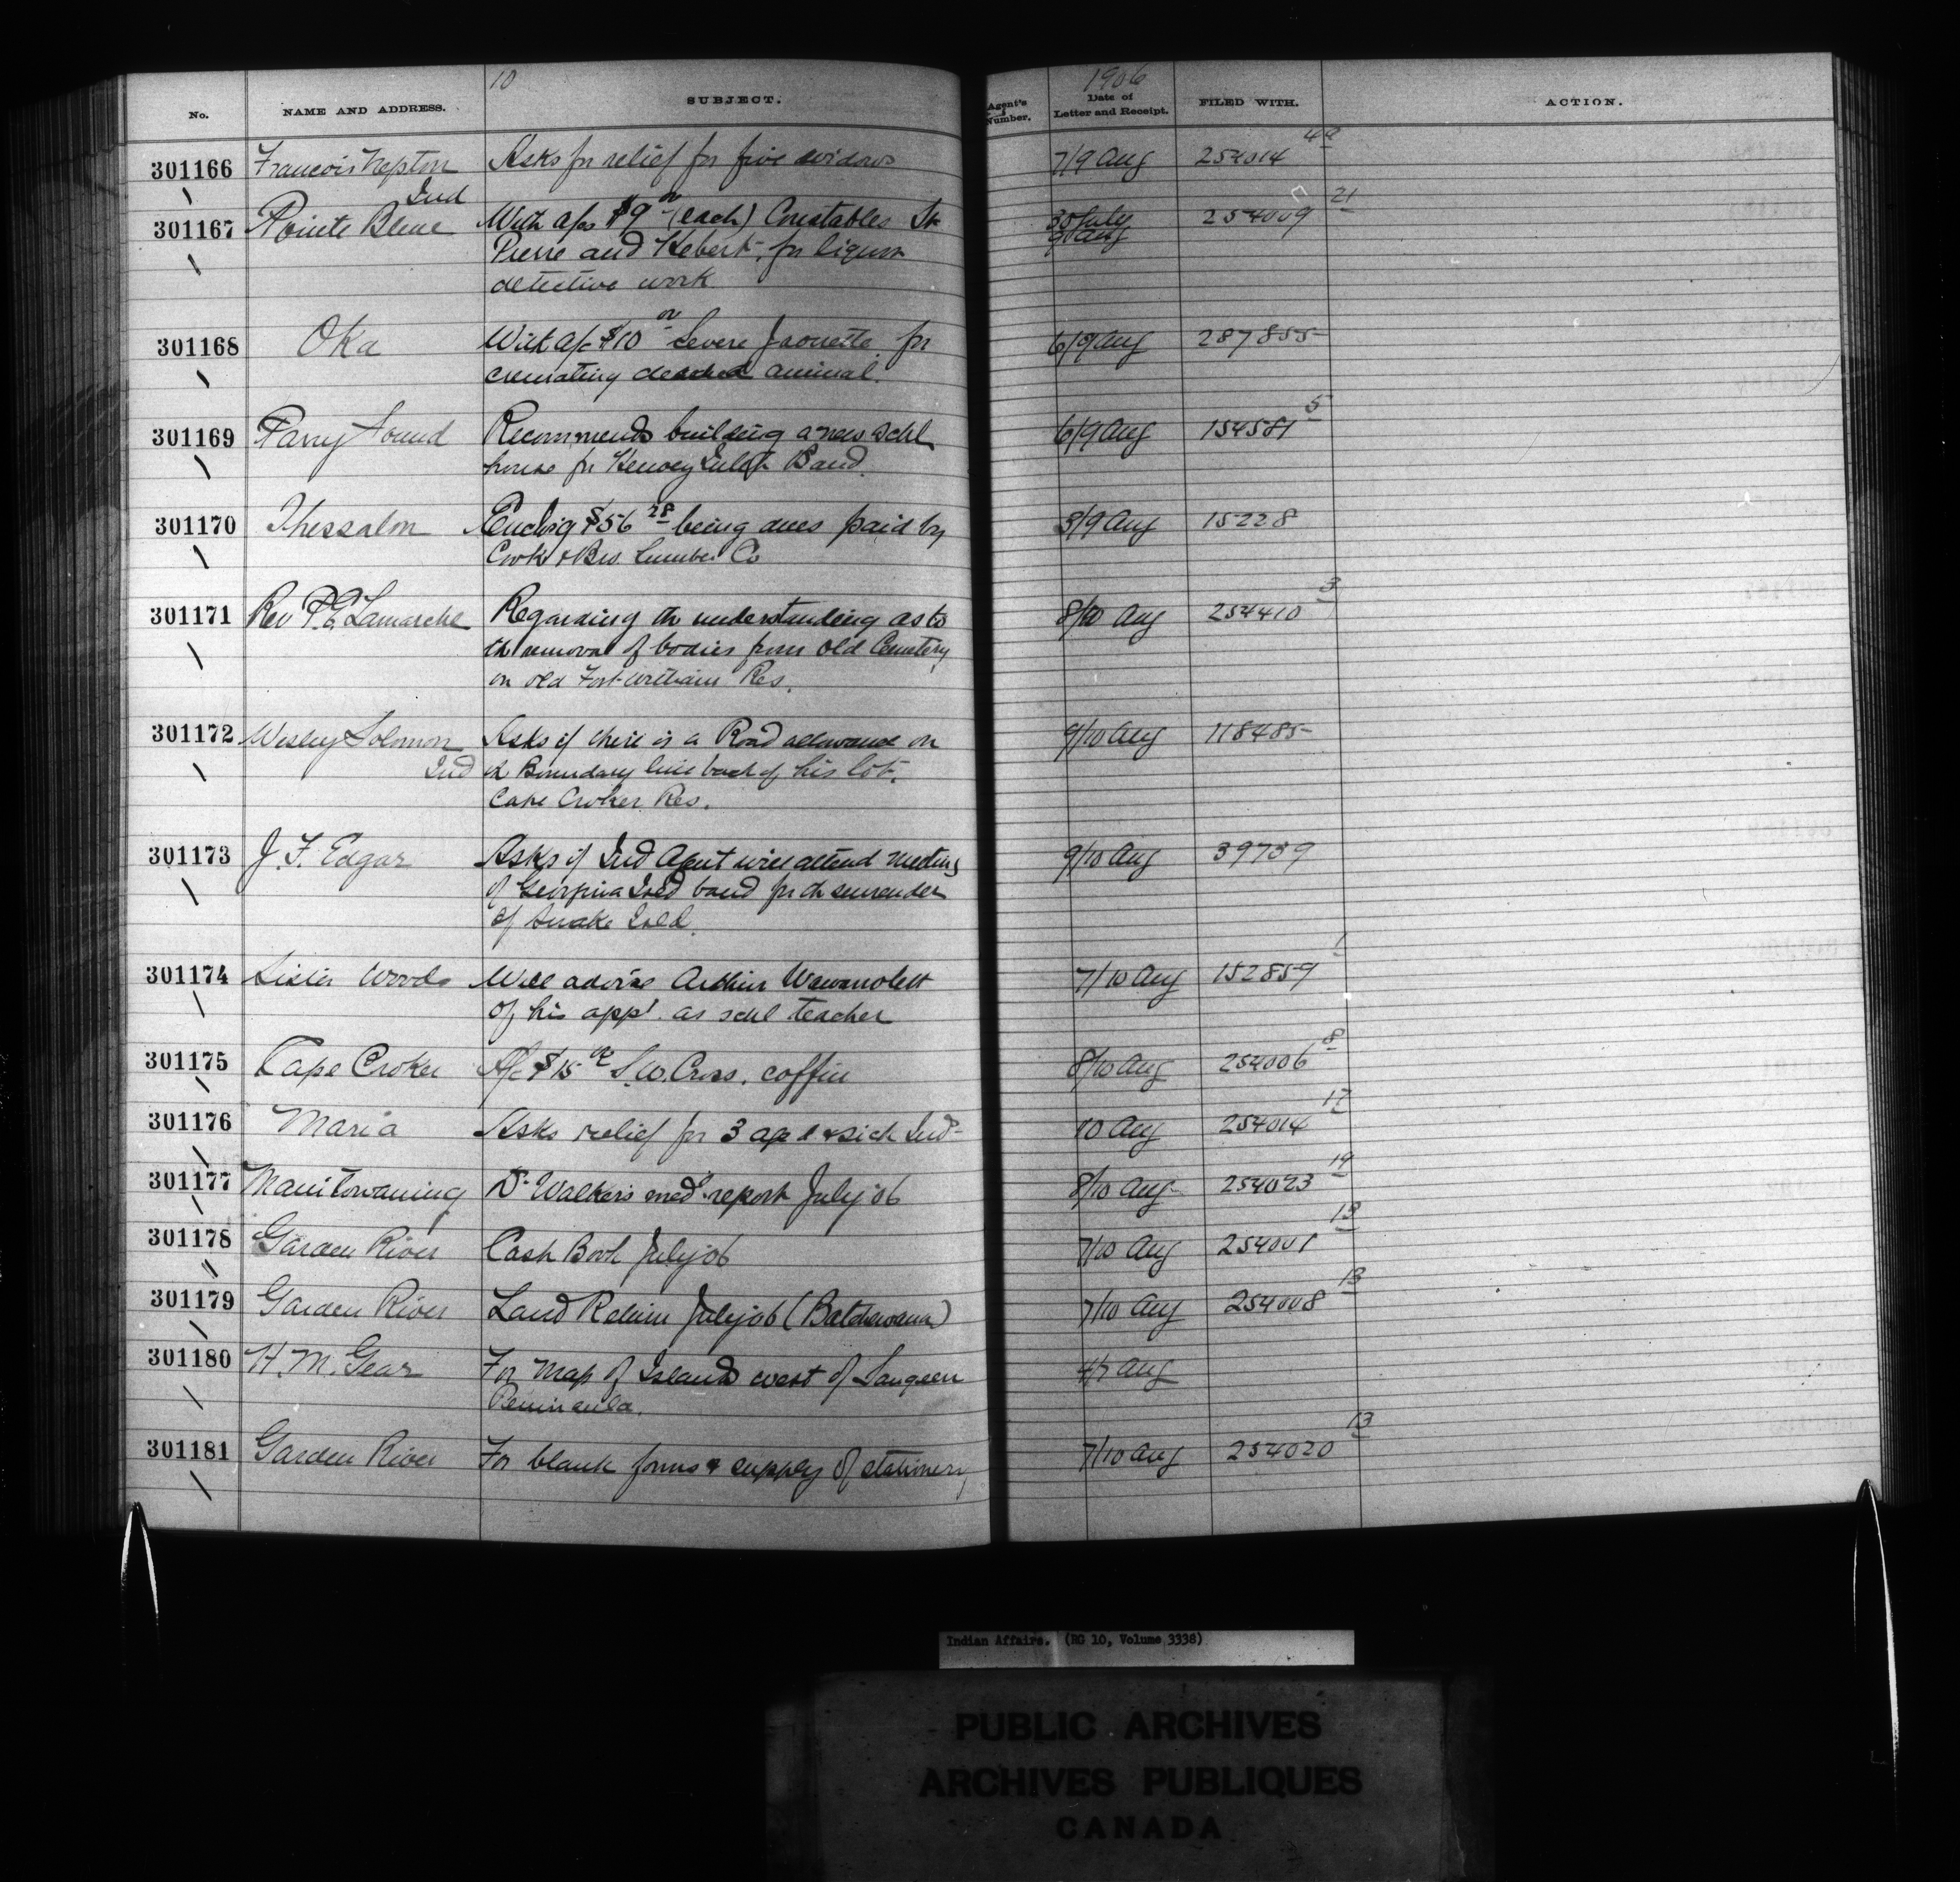 10
1906
No. NAME AND ADDRESS. SUBJECT. Agent's Number. Date of Letter and Receipt. FILED WITH. ACTION.
301166 Francois Nepton Ind Asks for relief for five widows 7/9 Aug 254014 49
301167 Pointe Bleue With a/cs $9 00 (each) Constables St 30 July 9 Aug 254009 21
Pierre and Hebert, for liquor
detective work
301168 Oka With a/c $10 00 Severe Jaouette for 6/9 Aug 287855
cremating dead animal.
301169 Parry Sound Recommends building a new schl 6/9 Aug 154581 5
house for Henvey Inlet Band.
301170 Thessalon Enclosg $56 28 being dues paid by 8/9 Aug 15228
Cook & Bros. Lumber Co
301171 Rev P.E. Lamarche Regarding th understanding as to 8/10 Aug 254410 3
th removal of bodies from Old Cemetery
on old Fort William Res.
301172 Wesley Solomon Ind Asks if there is a Road allowance on 9/10 Aug 118485
th Boundary line back of his lot.
Cape Croker Res.
301173 J. F. Edgar Asks if Ind Agent will attend meeting 9/10 Aug 39739
of Georgina Isld band for th surrender
of Snake Isld.
301174 Sister Woods Will advise Arthur Wawanolett 7/10 Aug 152859 1
of his appt. as schl teacher
301175 Cape Croker A/c $15 00 S.W. Cross. coffin 8/10 Aug 254006 8
301176 Maria Asks relief for 3 aged & sick Inds 10 Aug 254014 17
301177 Manitowaning Dr. Walker's med. report July '06 8/10 Aug 254023 19
301178 Garden River Cash Book July 06 7/10 Aug 254001 13
301179 Garden River Land Return July 06 (Batchewana) 7/10 Aug 254008 13
301180 H. M. Gear For Map of Islands west of Saugeen 4/7 Aug
Peninsula.
301181 Garden River For blank forms & supply of stationery 7/10 Aug 254020 13
Indian Affairs. (RG 10, Volume 3338)
PUBLIC ARCHIVES
ARCHIVES PUBLIQUES
CANADA